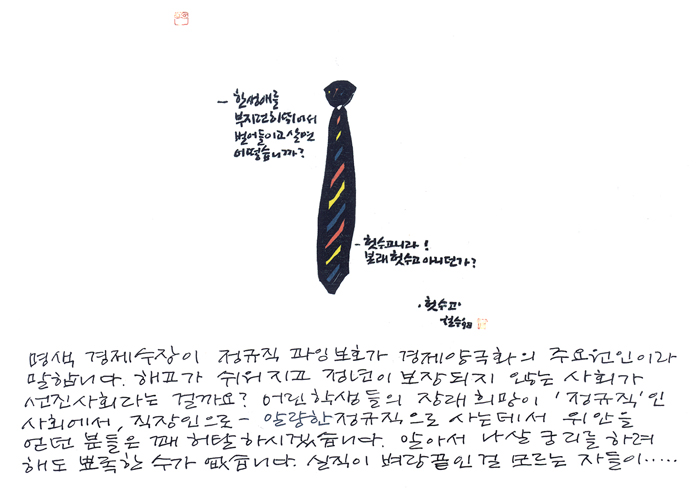 - 한생애를
부지런히 뛰어서
벌어들이고 살면
어떻습니까?
- 헛수고니라!
본래 헛수고 아니던가?
·헛수고·
철수
명색 경제수장이 정규직 과잉보호가 경제양극화의 주요원인이라
말합니다. 해고가 쉬워지고 정년이 보장되지 않는 사회가
선진사회라는 걸까요? 어린학생들의 장래희망이 '정규직'인
사회에서, 직장인으로- 알량한 정규직으로 사는데서 위안을
얻던 분들은 꽤 허탈하시겠습니다. 알아서 나살 궁리를 하려
해도 뾰족한 수가 없습니다. 실직이 벼랑끝인걸 모르는 자들이.....